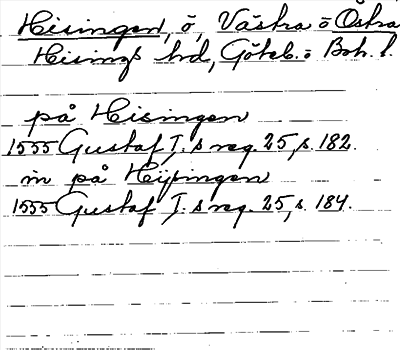 Hisingen, ö, Västra o Östra
Hisings hd, Göteb. o Boh. l.
på Hisingen
1555 Gustaf I:s reg. 25, s. 182.
in på Hijsingen
1555 Gustaf I:s reg. 25, s. 184.